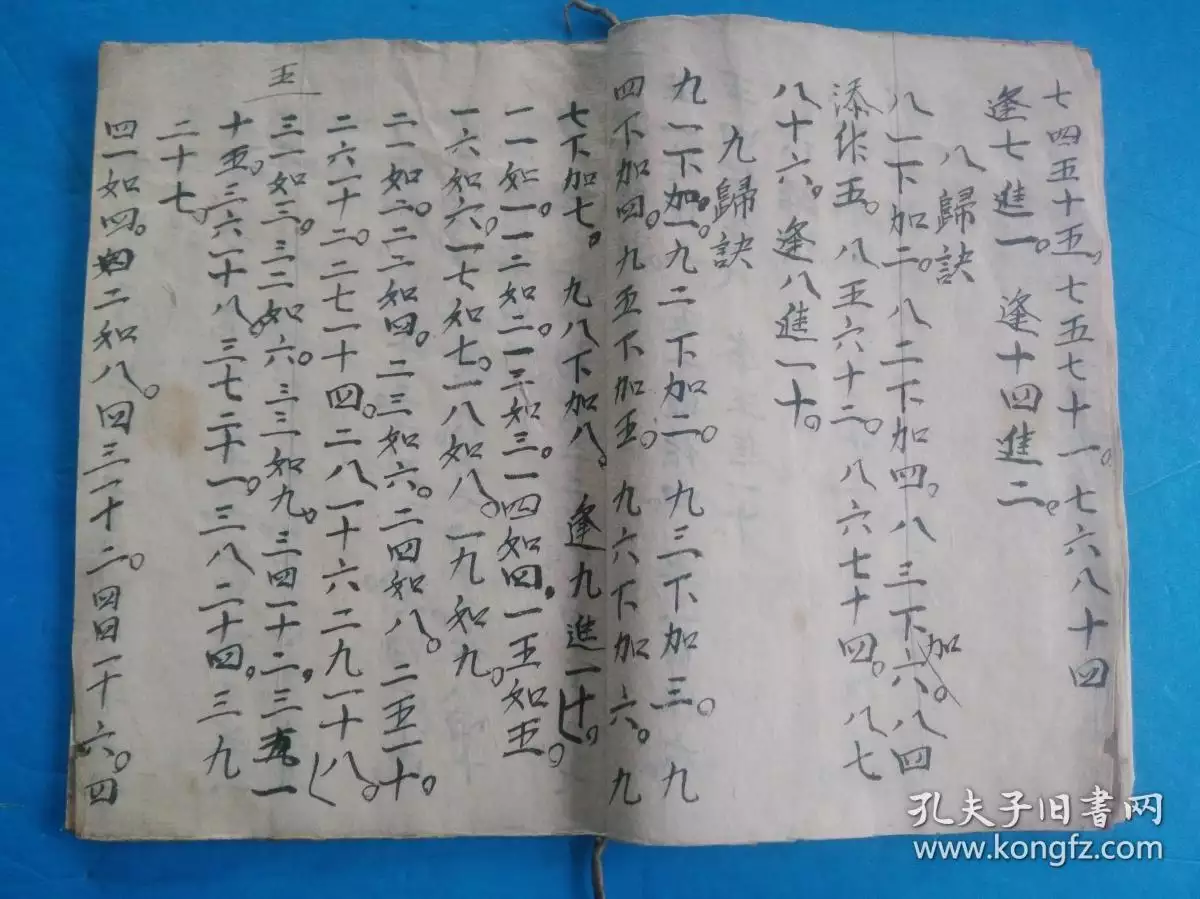 七四五十五。七五七十一。七六八十四
逢七進一。逢十四進二。
八歸訣
八一下加二。八二下加四。八三下加六。八四
添作五。八五六十二。八六七十四。八七
八十六。逢八進一十。
九歸訣
九一下加一。九二下加二。九三下加三。九
四下加四。九五下加五。九六下加六。九
七下加七。九八下加八。逢九進一十。
一一如一。一二如二。一三如三。一四如四。一五如五。
一六如六。一七如七。一八如八。一九如九。
二一如二。二二如四。二三如六。二四如八。二五一十。
二六十二。二七一十四。二八一十六二九一十八。
三一如三。三二如六。三三如九。三四十二。三五一
十五。三六一十八。三七二十一。三八二十四。三九
二十七。
五
四一如四。四二如八。四三一十二。四四一十六。四
孔夫子旧書网
www.kongfz.com